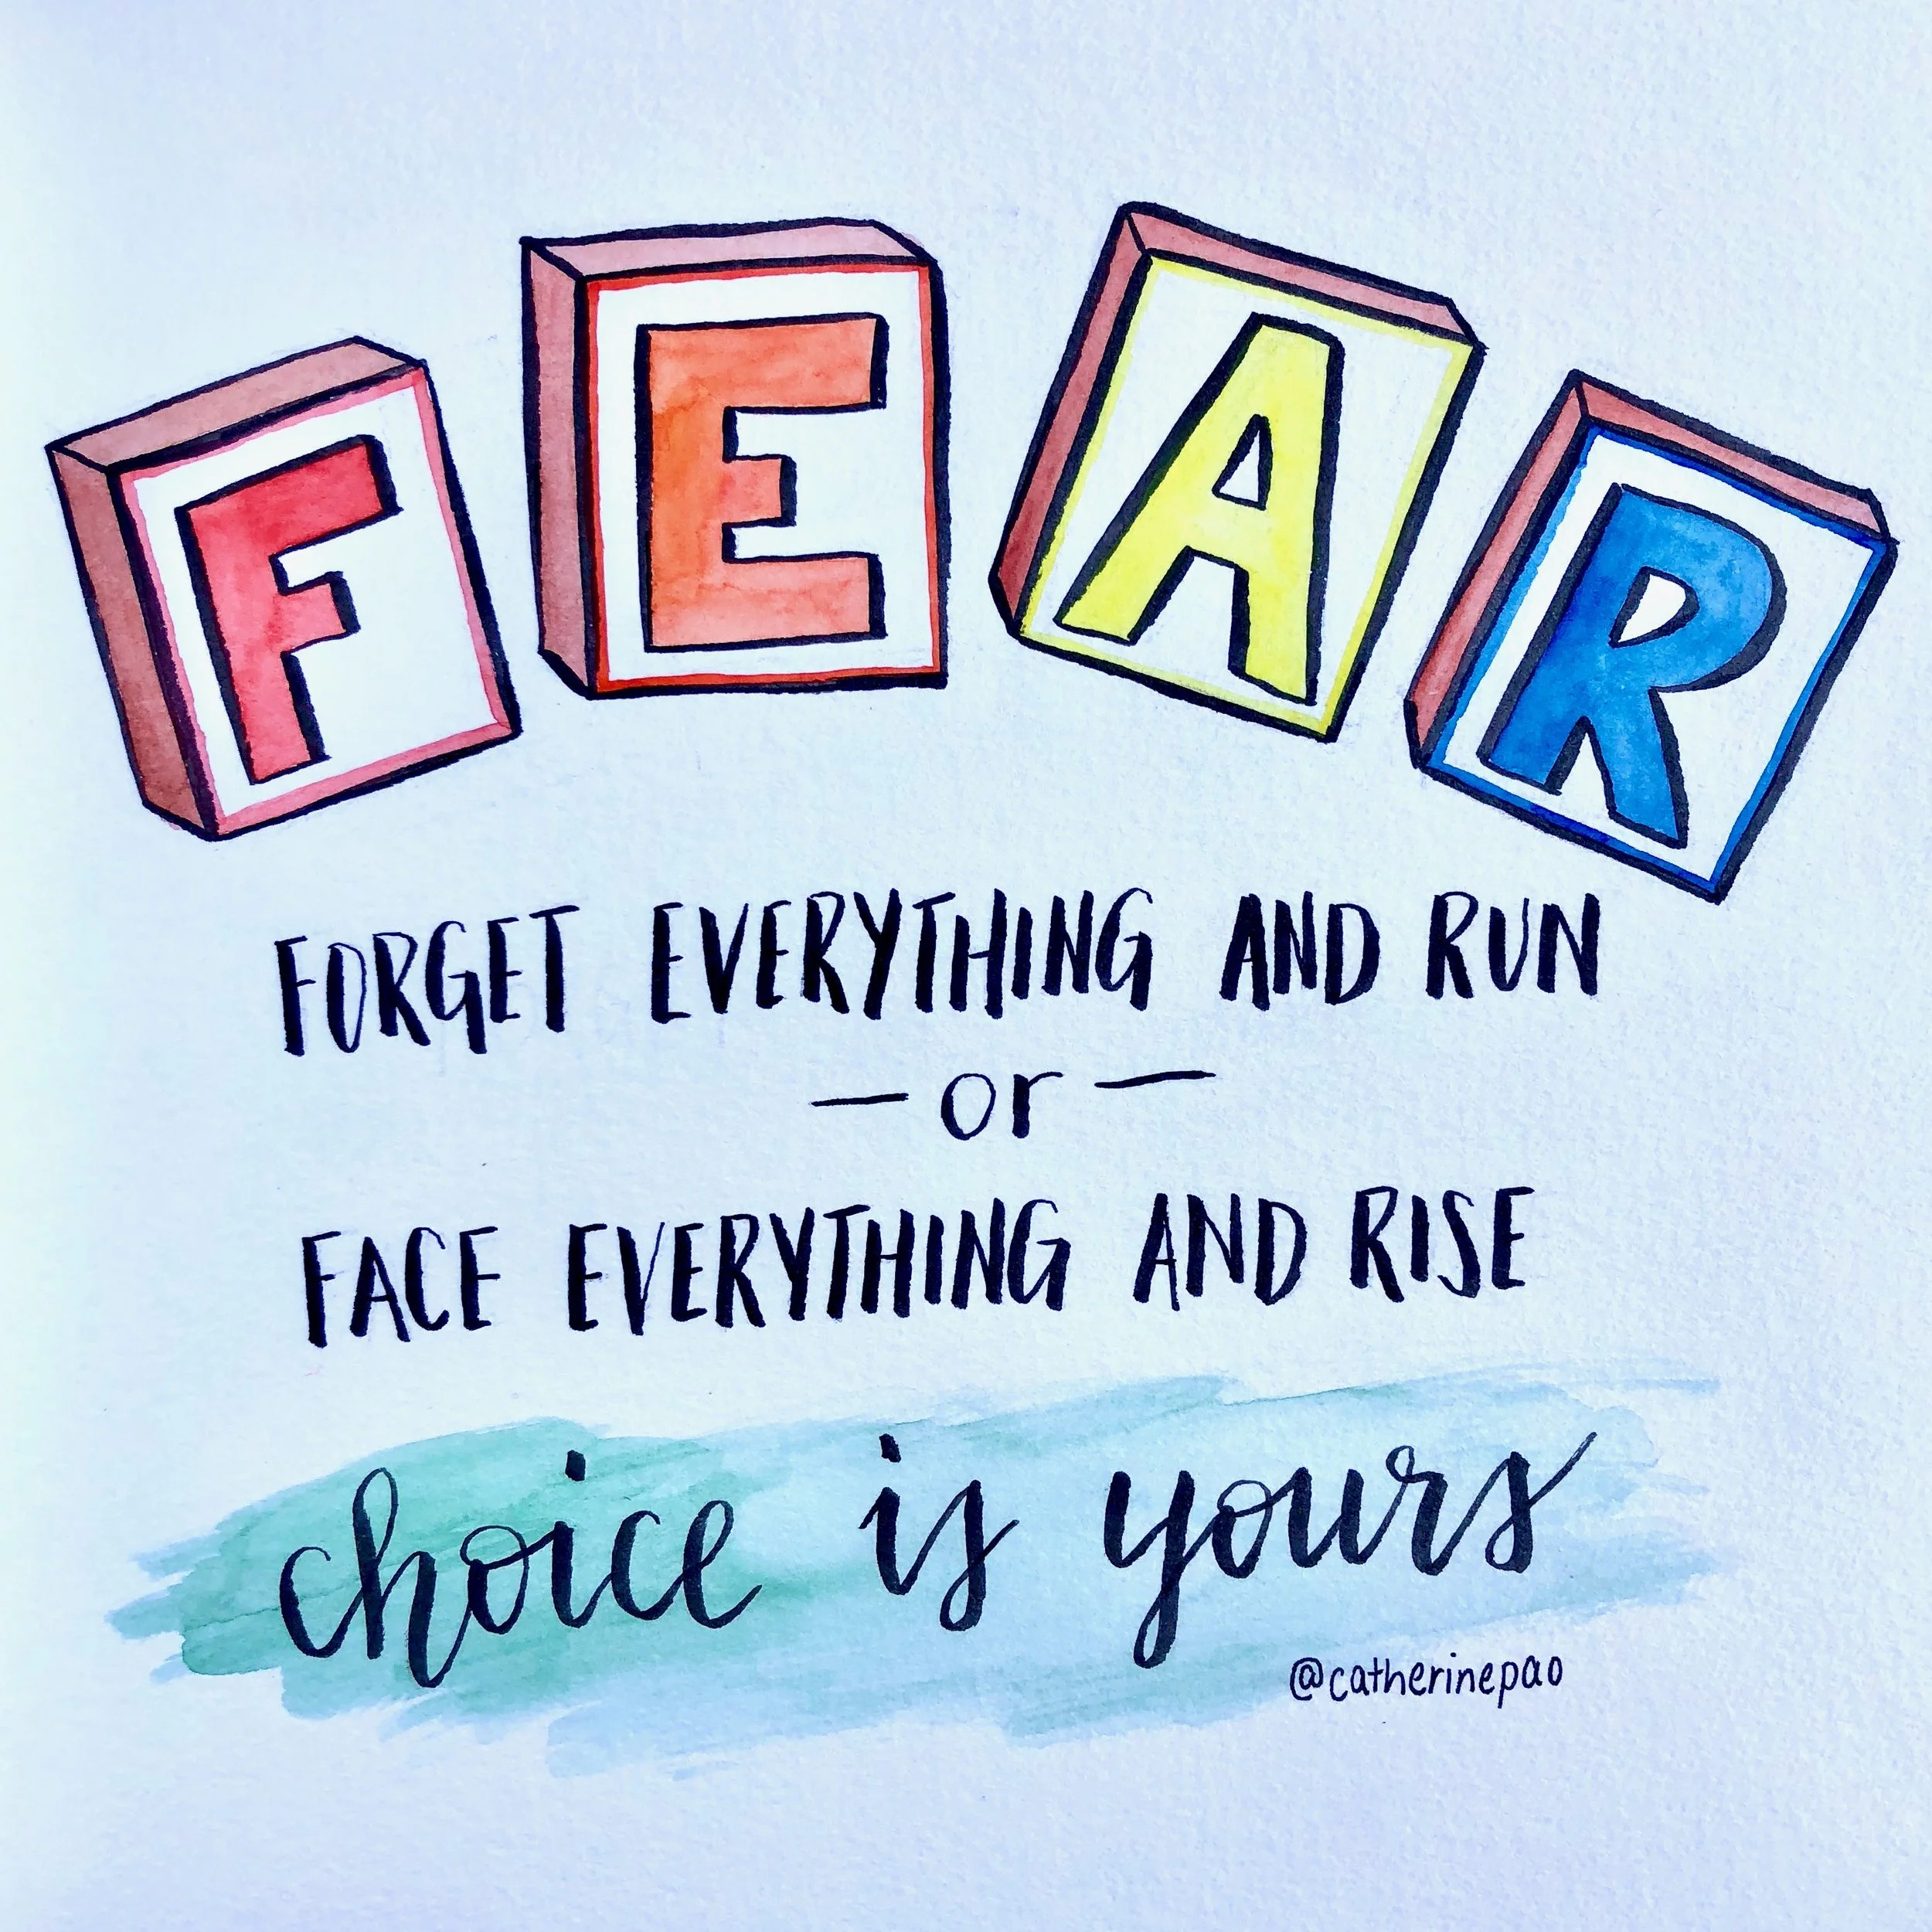 FEAR
FORGET EVERYTHING AND RUN
— or —
FACE EVERYTHING AND RISE
choice is yours
@catherinepao